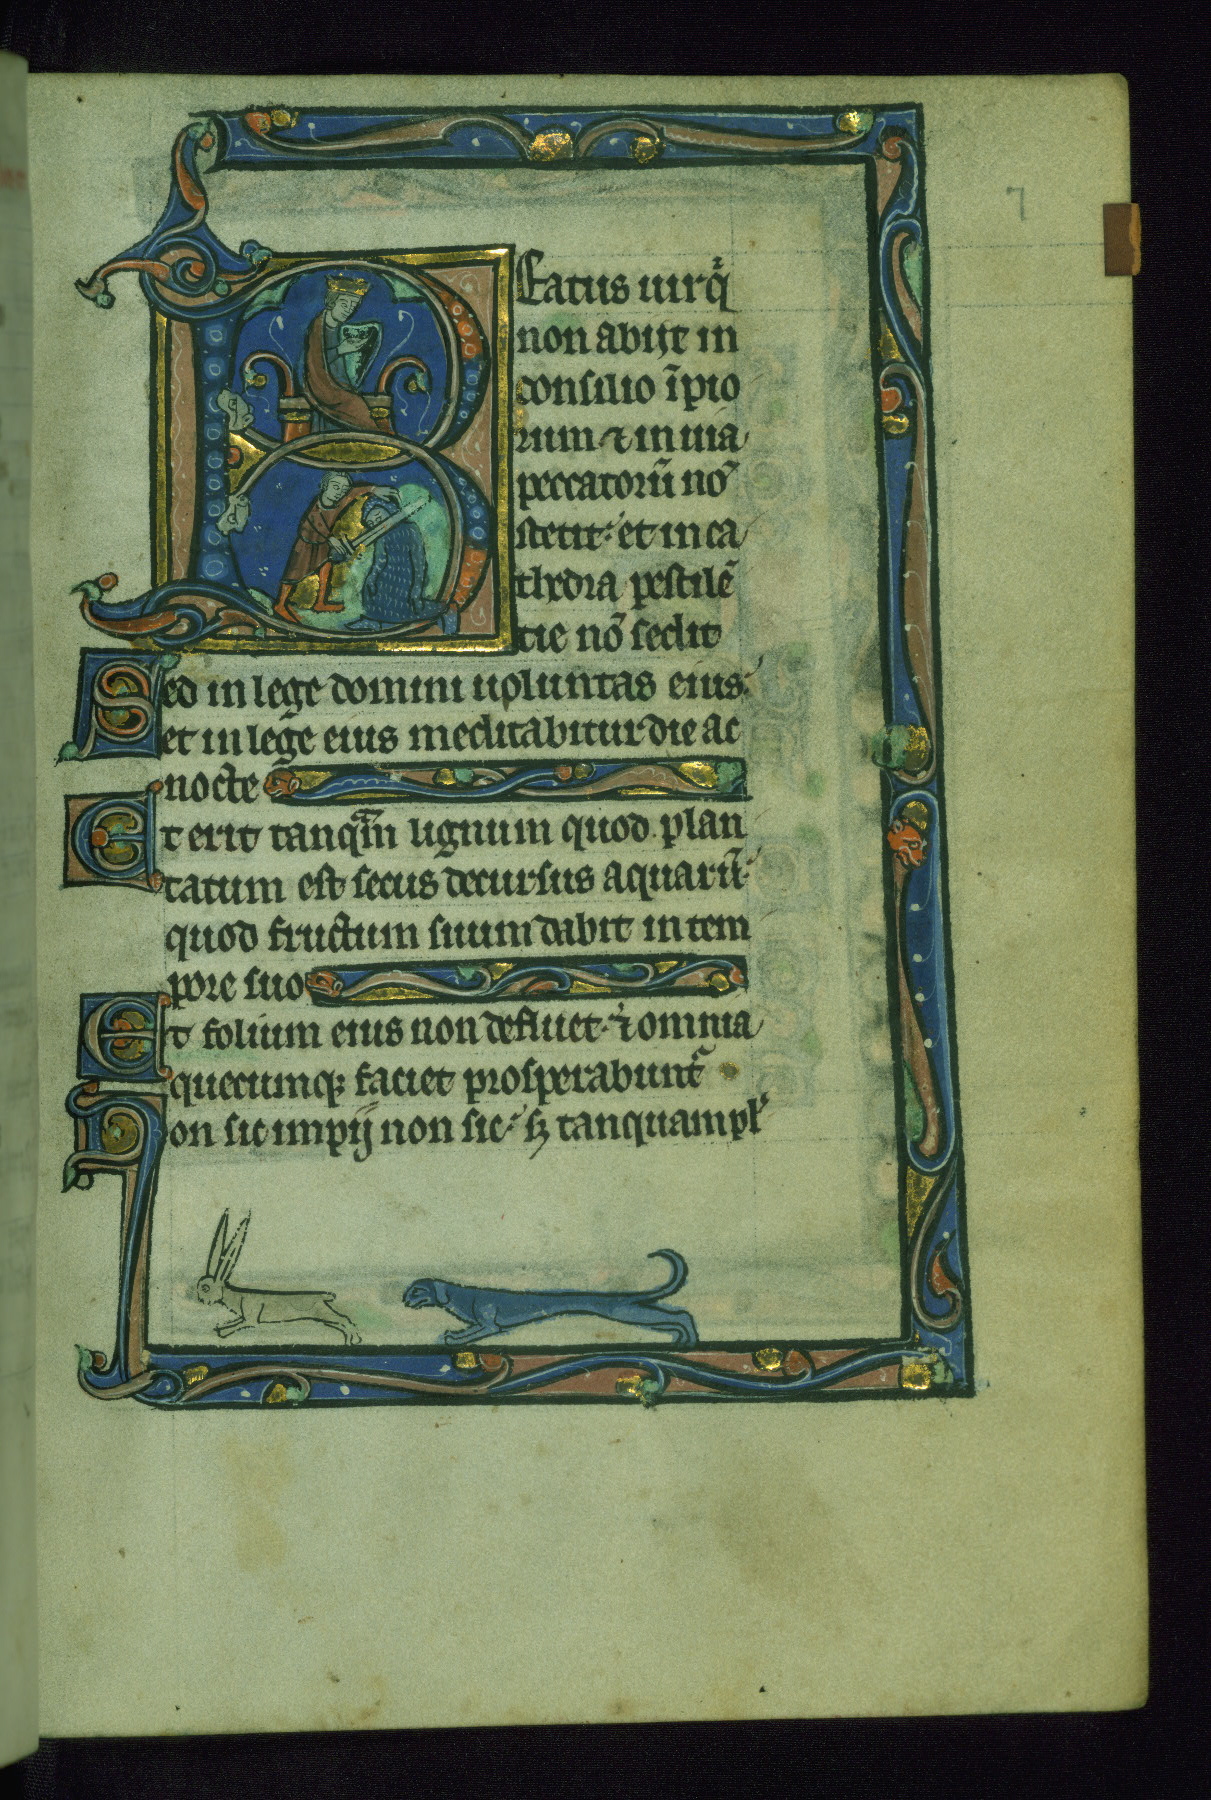 7
Beatus uir q̄
non abijt in
consilio īpio
rum ⁊ in uia
peccatorū nō
stetit: et in ca
thedra pestilē
tie nō sedit
Sed in lege domini uoluntas eius:
et in lege eius meditabitur die ac
nocte
Et erit tanqᵃm lignum quod plan
tatum est secus decursus aquarū:
quod fructum suum dabit in tem
pore suo
Et folium eius non defluet: ⁊ omnia
quecumqꝫ faciet prosperabuntᷣ
Non sic impij non sic: sꝫ tanquam pl'